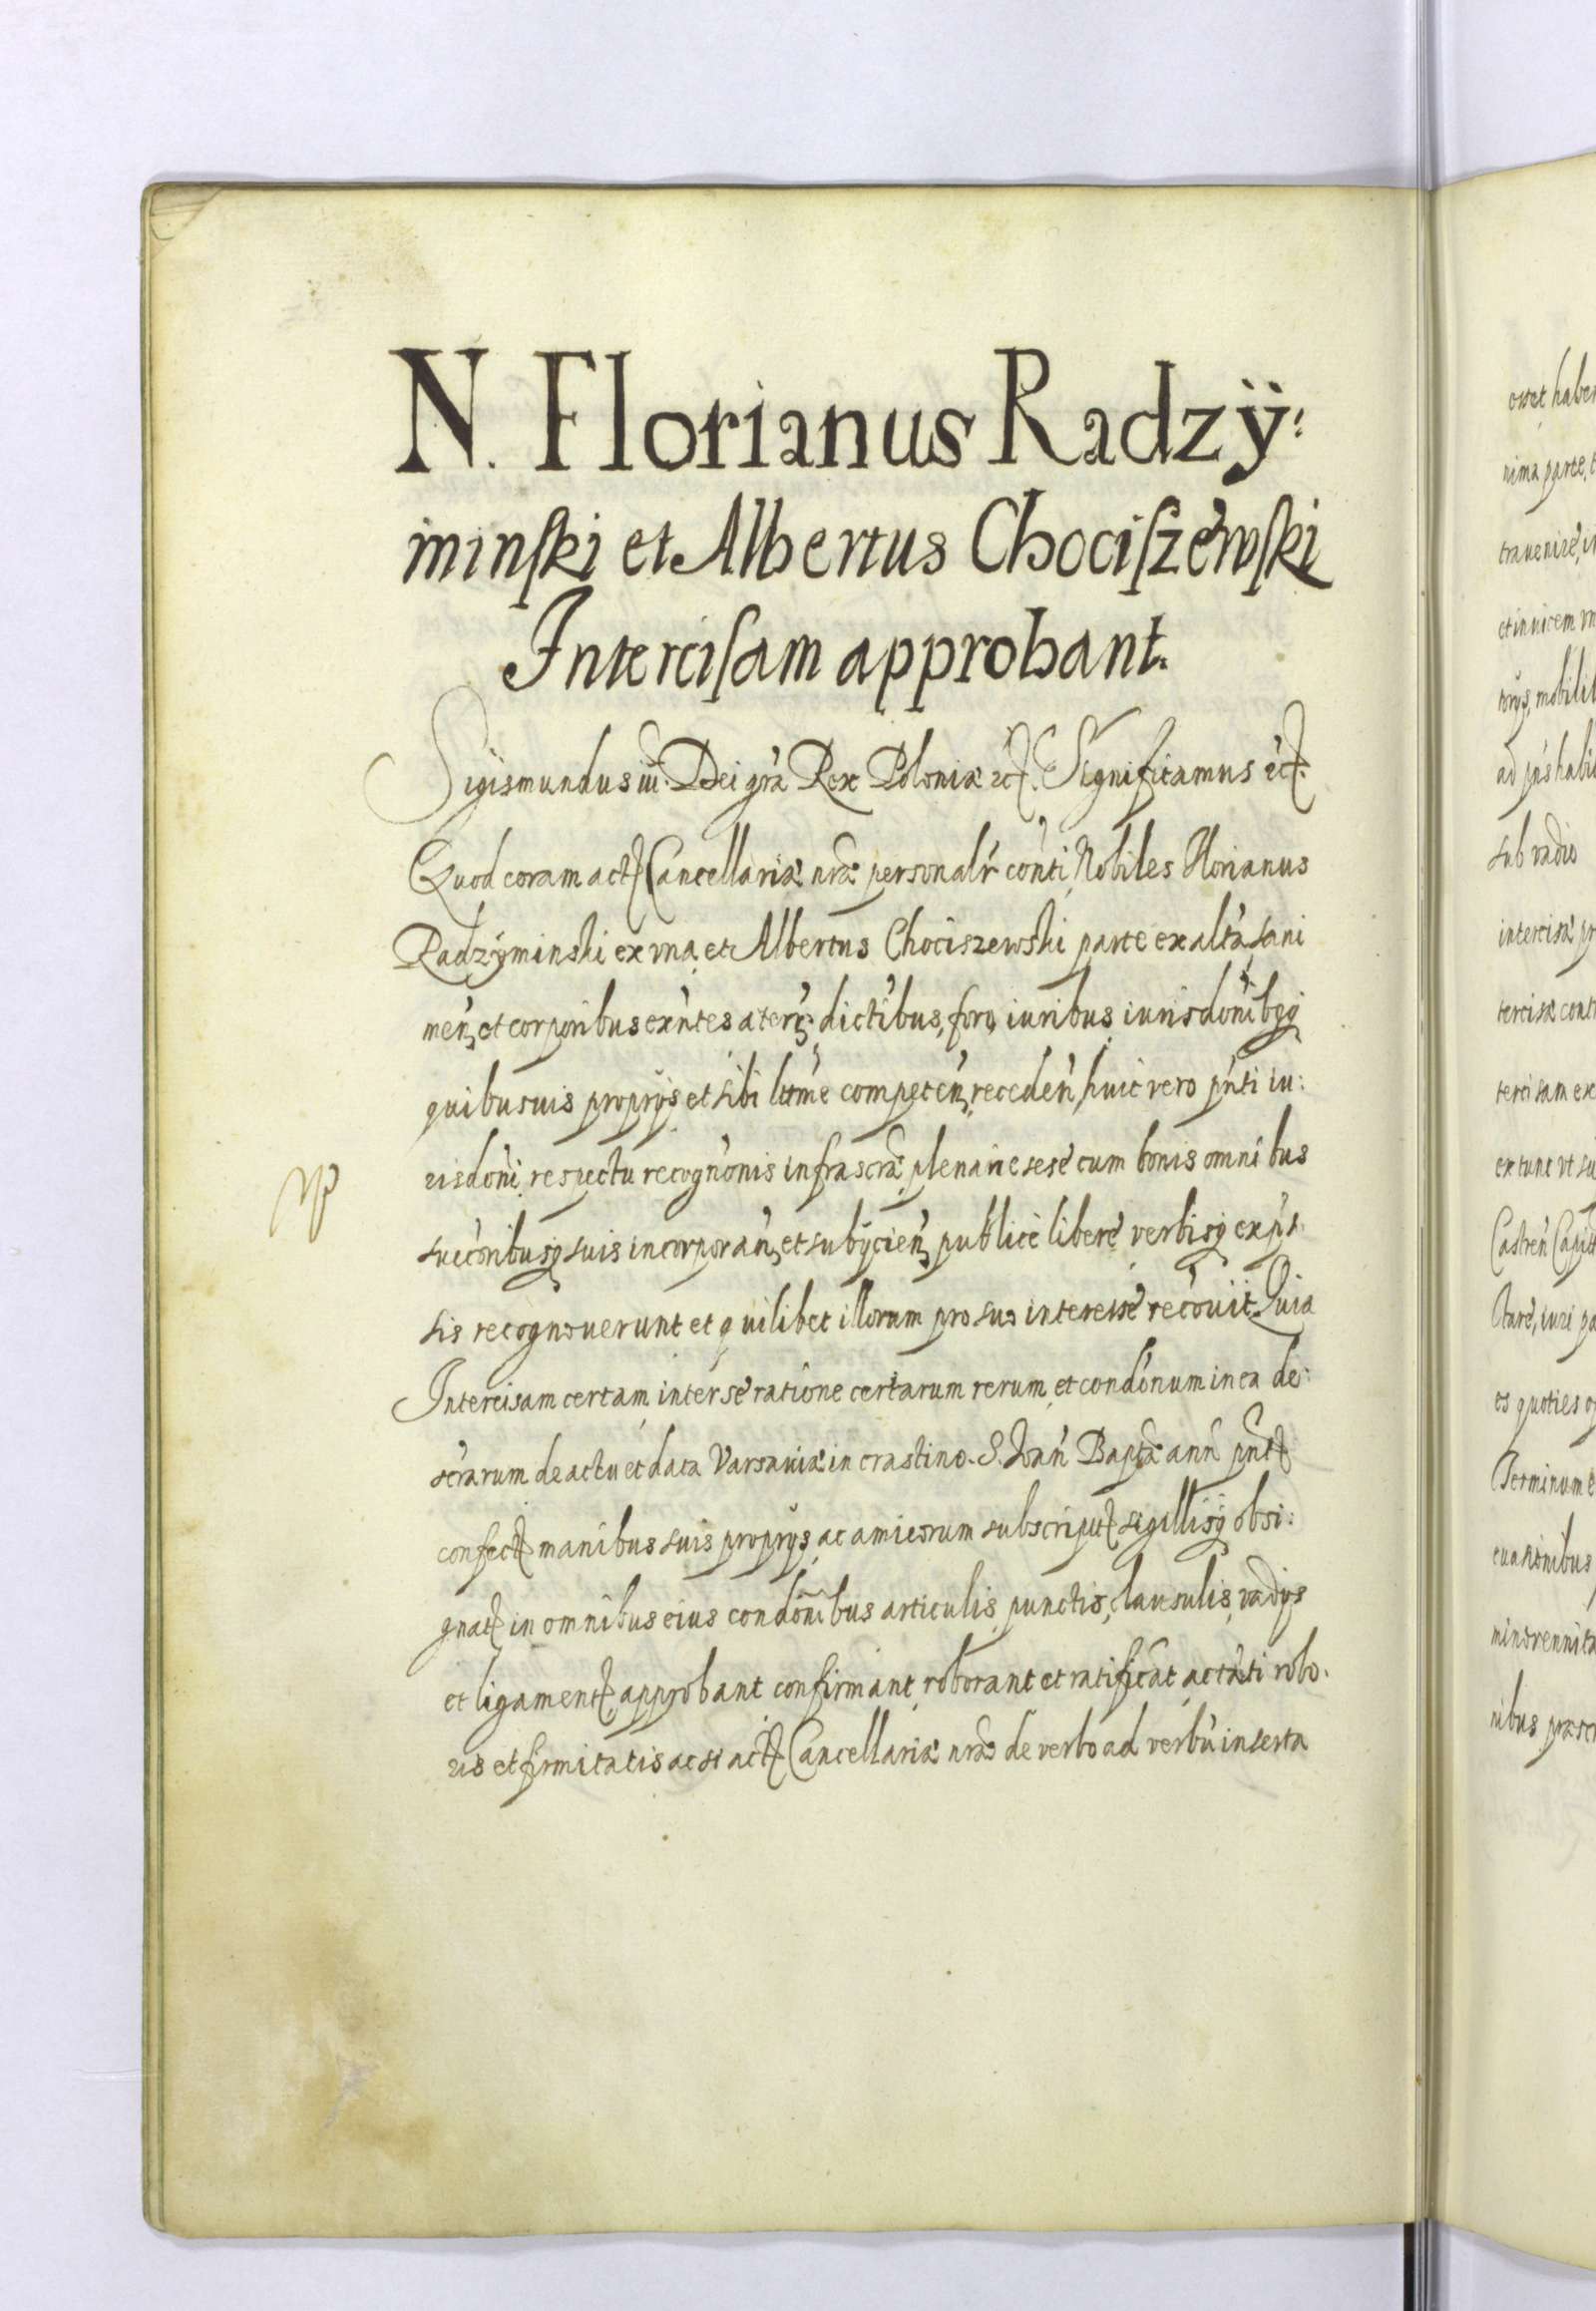 N. Florianus Radzÿ:
minſki et Albertus Chociſzewſki
Interciſam approbant.
Sigismundus iii. Dei gra Rex Poloniæ etc. Significamus etc.
Quod coram actis Cancellariæ nræ personalr conti Nobiles Florianus
Radzyminski ex vna et Albertus Chociszewski parte ex altra, sani
men, et corporibus exntes a terris, dictibus, foro, iuribus iurisdonibqq
quibusuis proprÿs et sibi lttme competen, receden, huic vero pnti iu:
risdoni respectu recognonis infrascræ plenarie sese cum bonis omnibus
succoribusq suis incorporan, et subÿcien, publice libere verbisq expr.
sis recognouerunt et quilibet illorum pro suo interesse recouit Quia
Intercisam certam inter se ratione certarum rerum et condonum in ea de:
scrarum de actu et data Varsauiæ in crastino S. Joan Baptæ ann pntis
confectis manibus suis proprÿs ac amicorum subscriptis sigillisq obsi:
gnatis in omnibus eius condonibus articulis punctis, clausulis, vadÿs
et ligamentis approbant confirmant roborant et ratificat ac tanti robo.
ris et firmitatis ac si actis Cancellariæ nræ de verbo ad verbu inserta
esset haber
nima parte,
trauenire,
et inuicem
mobilib
sub vadio
intercisæ
tercisæ contr
tercisam
ex tunc vt su
Castren Capit
es quoties
Terminum